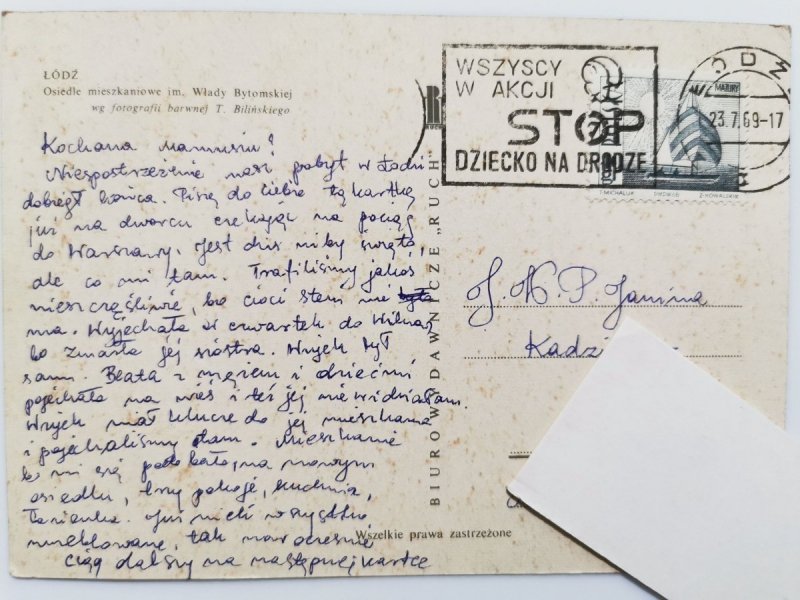 ŁÓDŹ
Osiedle mieszkaniowe im. Włady Bytomskiej
wg fotografii barwnej T. Bilińskiego
WSZYSCY
W AKCJI
STOP
DZIECKO NA DRODZE
MAZURY
23.7.69-17
T. MICHALUK
Z. KOWALSKI
Kochana Mamusiu!
Niepostrzeżenie nasz pobyt w Łodzi
dobiegł końca. Piszę do Ciebie tą kartkę
już na dworcu czekając na pociąg
do Warszawy. Jest dziś niby święto,
ale co mi tam. Trafiliśmy jakoś
nieszczęśliwie, bo cioci Steni nie była
ma. Wyjechała w czwartek do Wilna,
bo zmarła jej siostra. Wujek był
sam. Beata z mężem i dziećmi
pojechała na wieś i też jej nie widziałam.
Wujek miał klucze do jej mieszkania
i pojechaliśmy tam. Mieszkanie
b. mi się podobało, na nowym
osiedlu, trzy pokoje, kuchnia,
łazienka. Już mieli wszystko
umeblowane, tak nowocześnie
ciąg dalszy na następnej kartce
BIURO WYDAWNICZE „RUCH"
J. W. P. Janina
Wszelkie prawa zastrzeżone